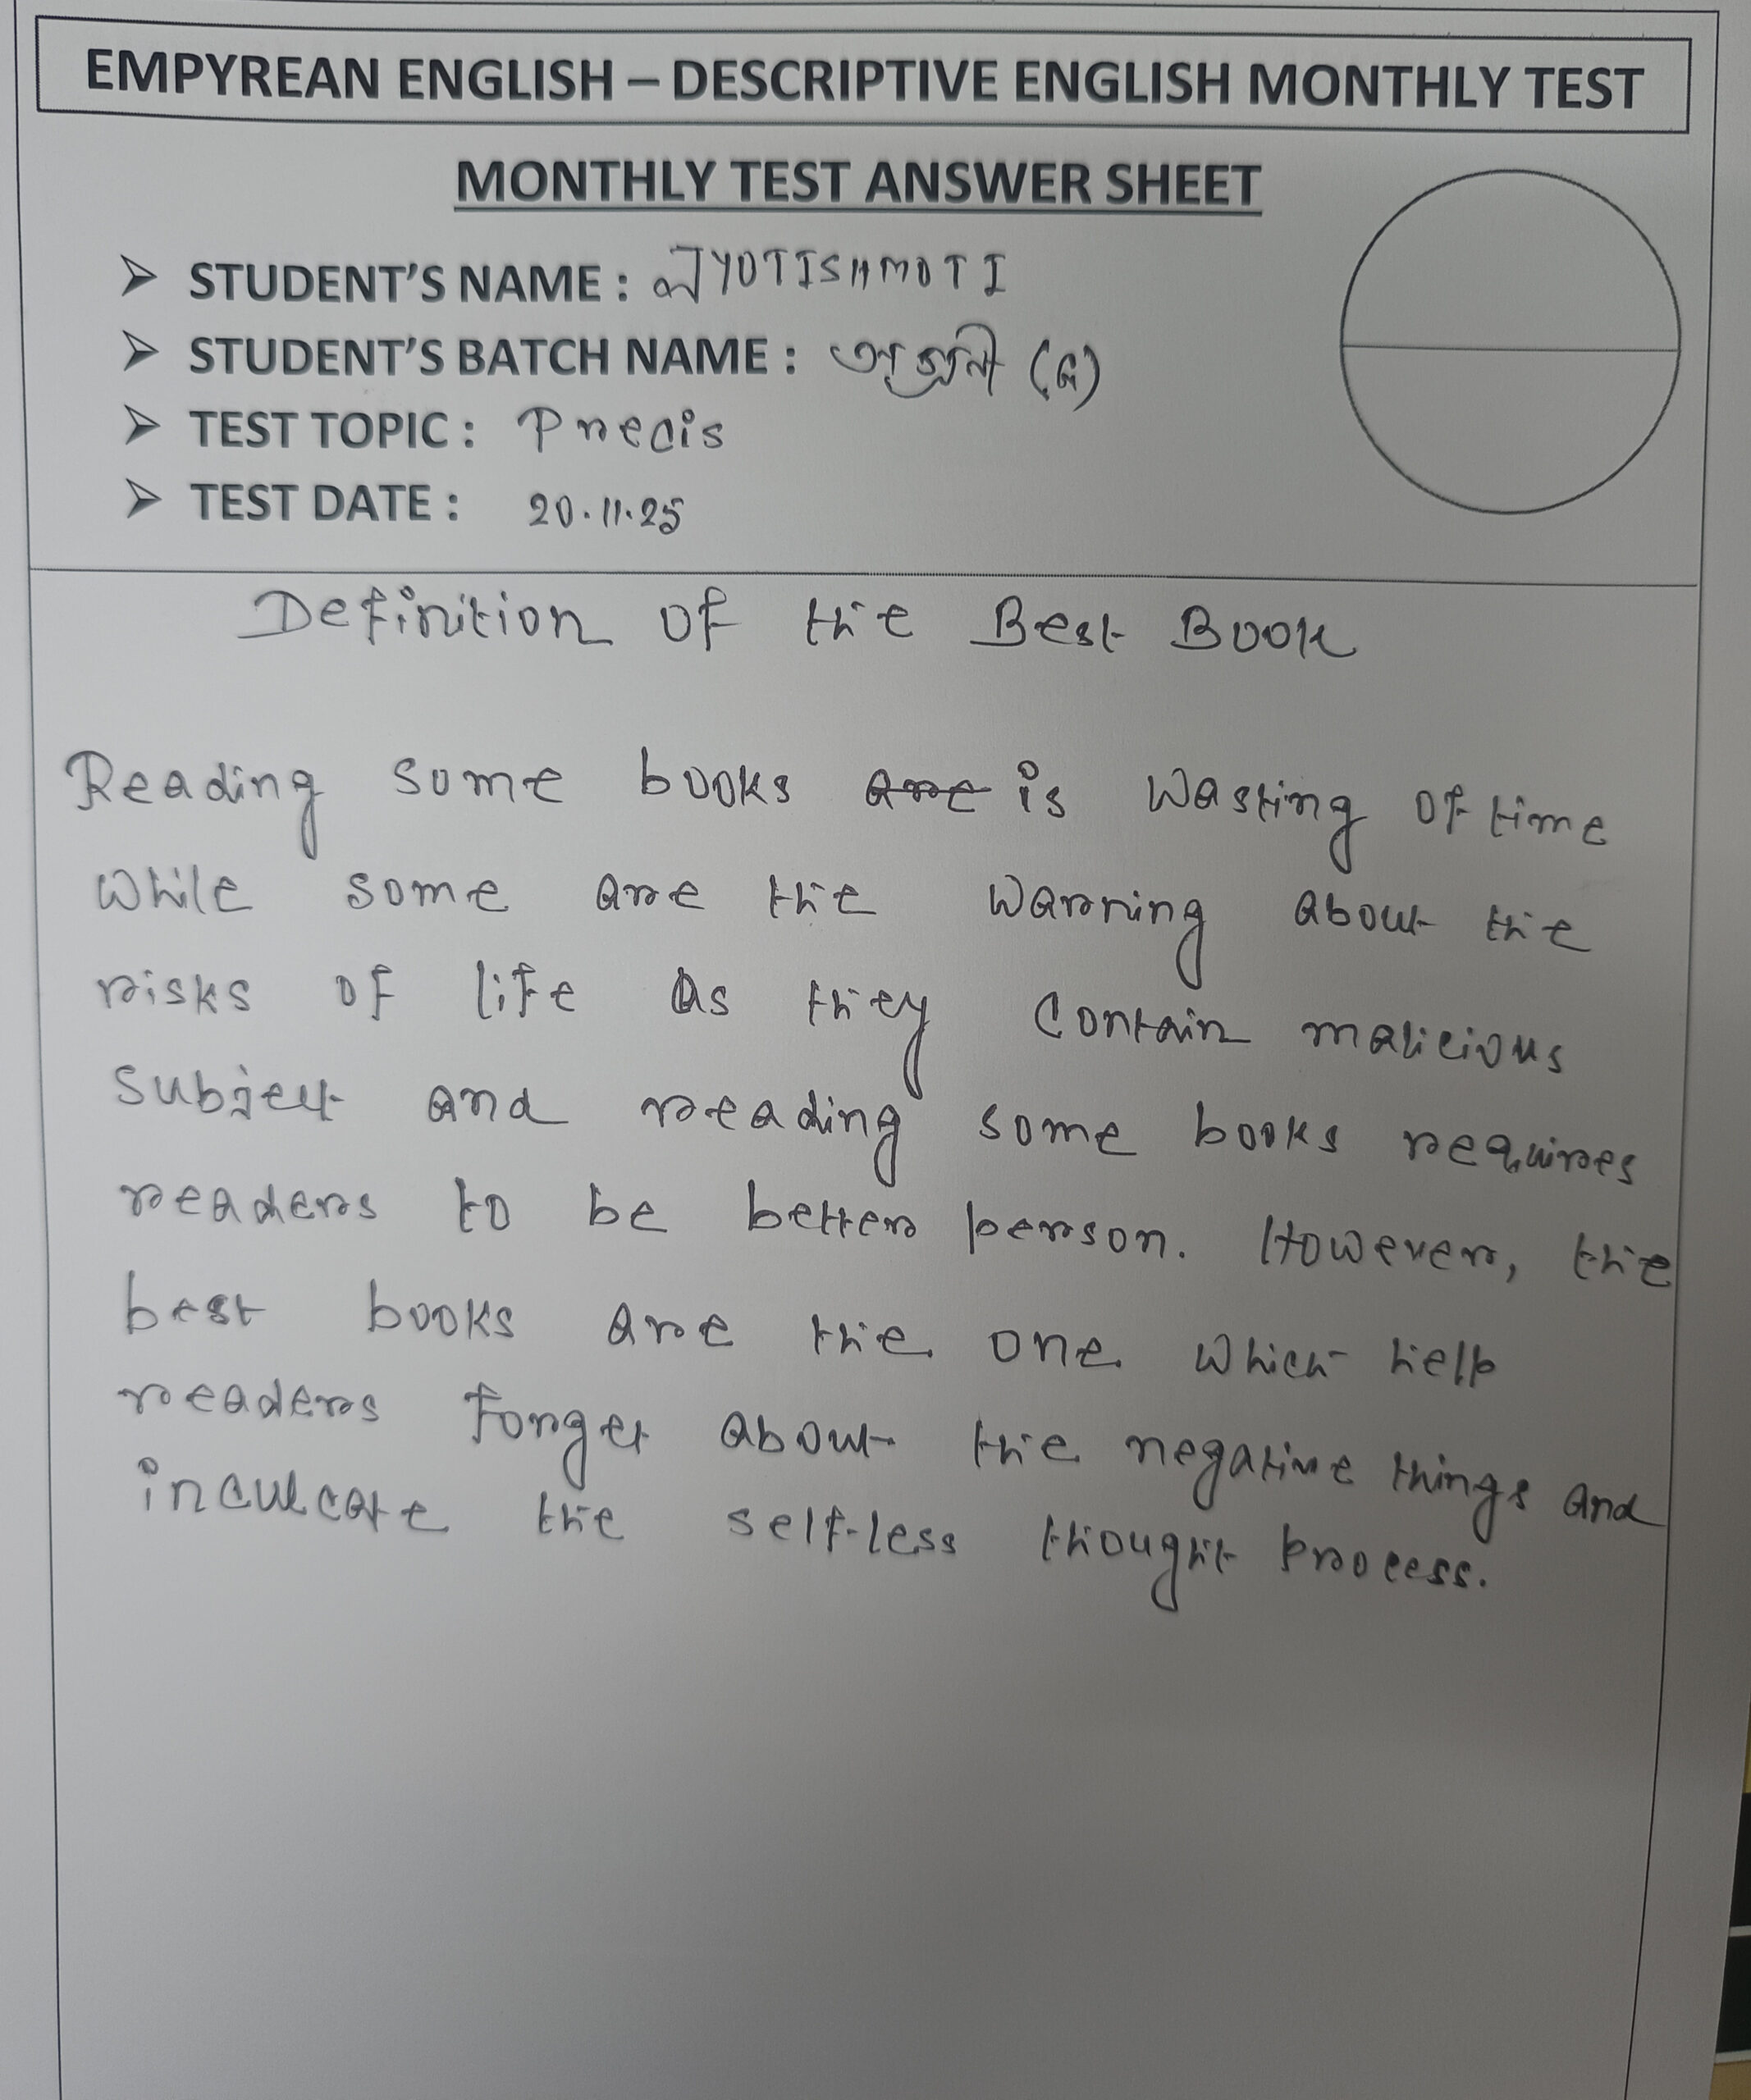 EMPYREAN ENGLISH – DESCRIPTIVE ENGLISH MONTHLY TEST
MONTHLY TEST ANSWER SHEET
➢ STUDENT'S NAME : JYOTISHMOTI
➢ STUDENT'S BATCH NAME : (G)
➢ TEST TOPIC : Precis
➢ TEST DATE : 20.11.25
Definition of the Best Book
Reading some books are is wasting of time
while some are the warning about the
risks of life as they contain malicious
subject and reading some books requires
readers to be better person. However, the
best books are the one which help
readers forget about the negative things and
inculcate the self-less thought process.